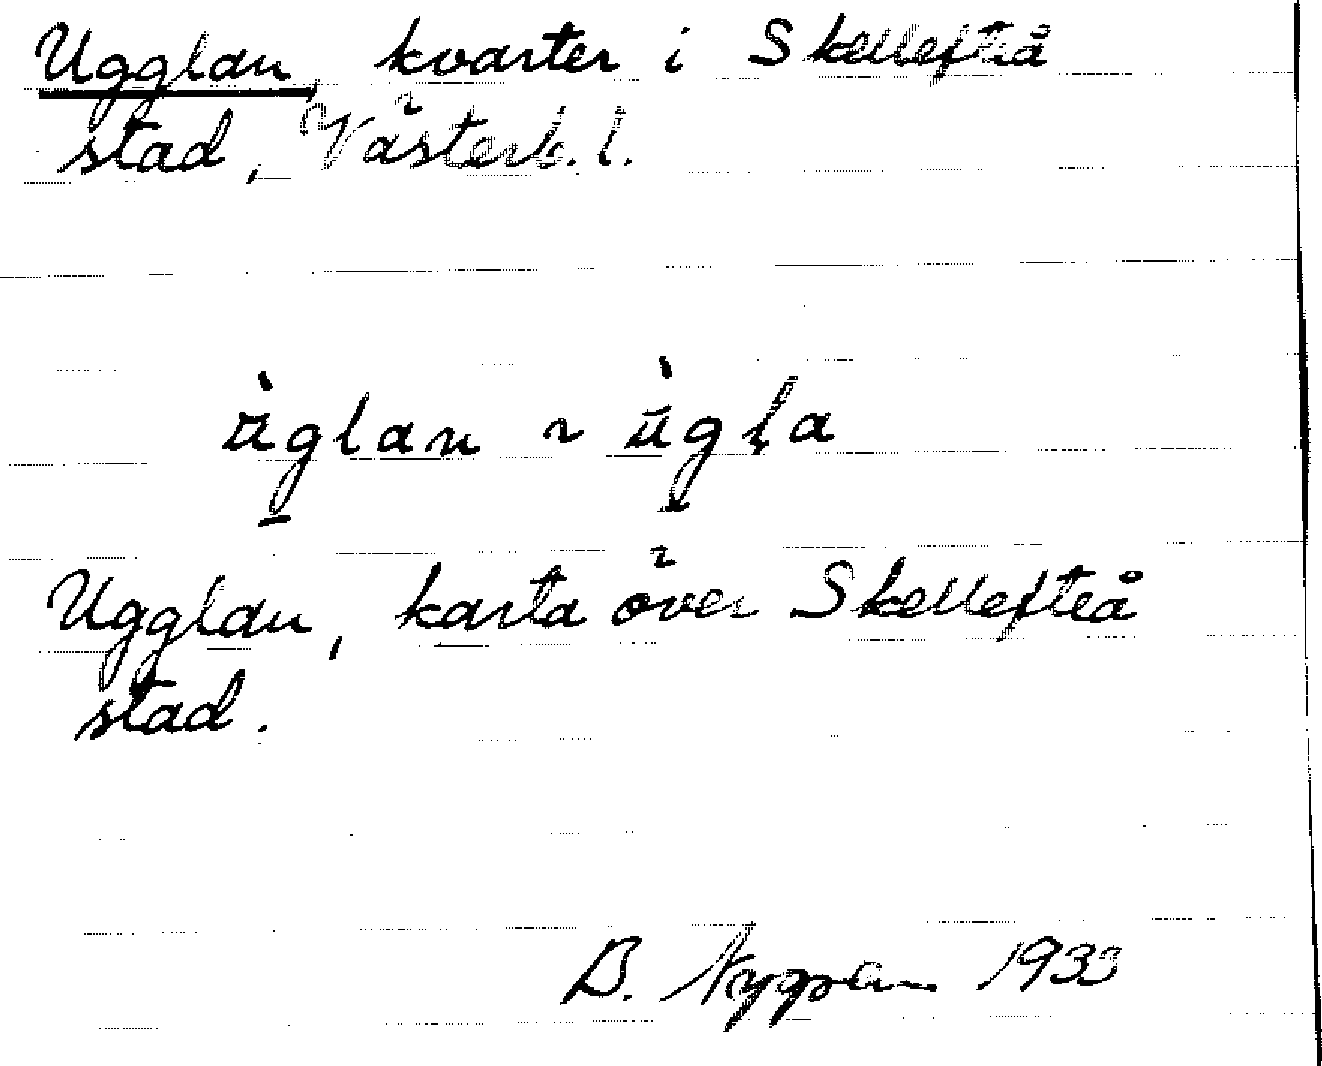 Ugglan, kvarter i Skellefteå
stad, Västerb. l.
ùglan ~ ùgla
Ugglan, karta över Skellefteå
stad.
B. 1933